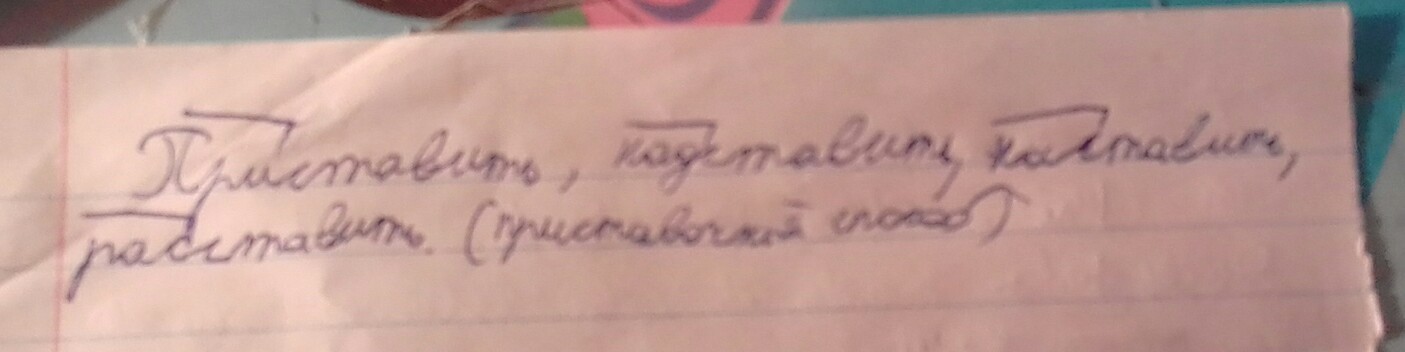 Приставить, надставить, наставить,
расставить. (приставочный способ)